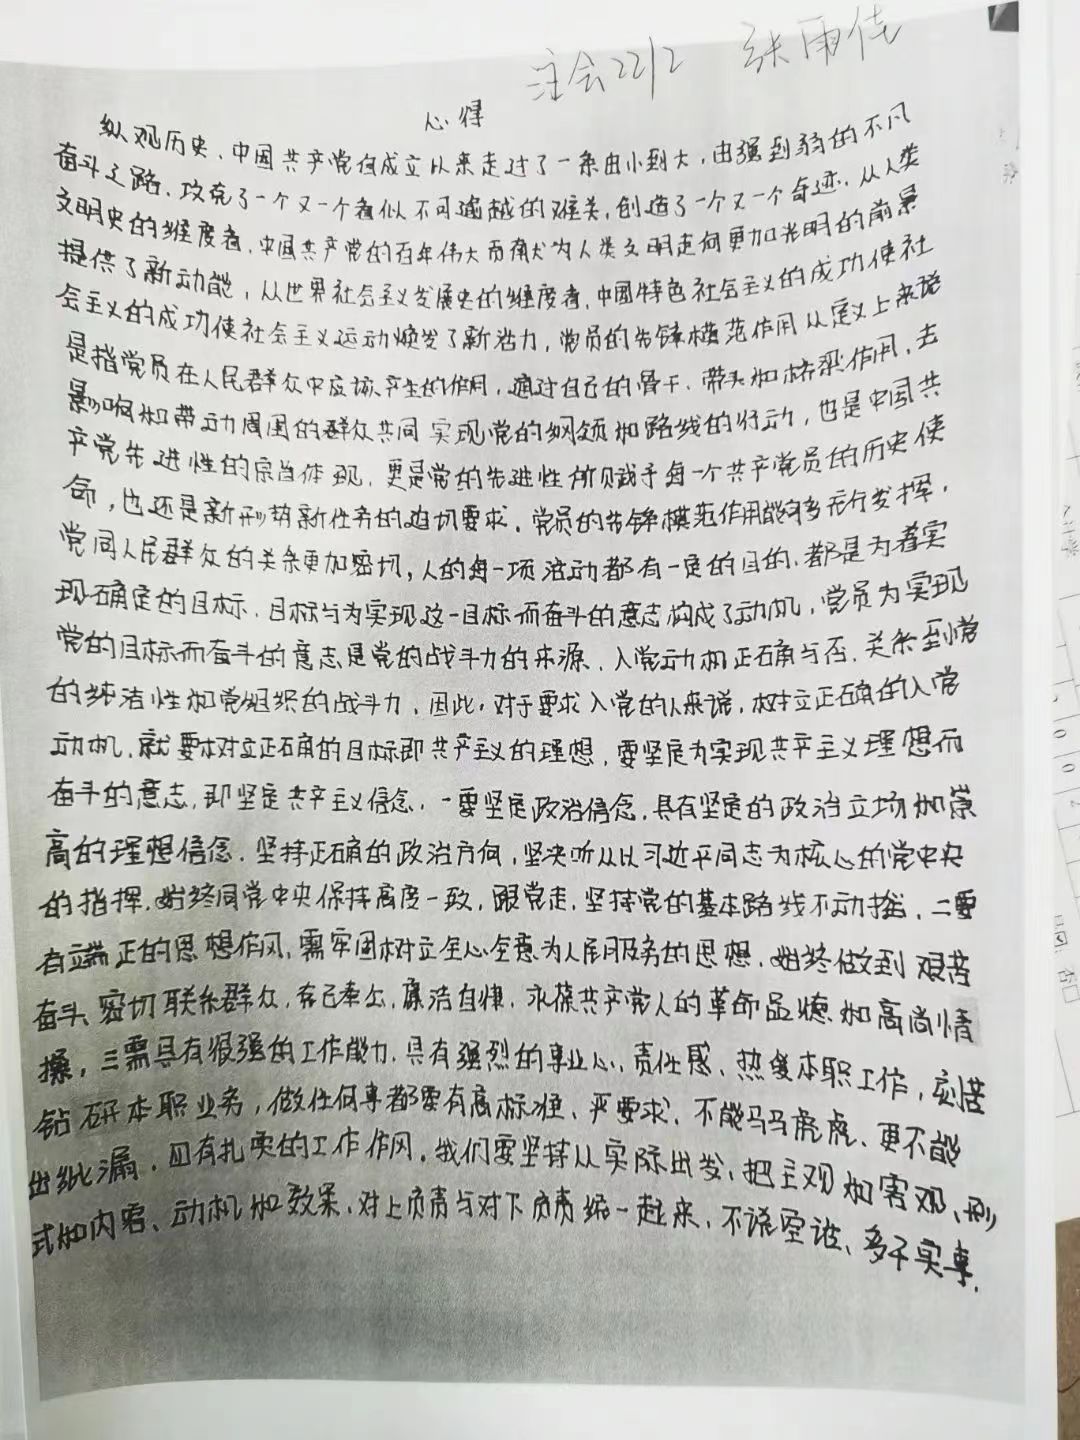 注会2212 张雨佳
心得
纵观历史、中国共产党自成立以来走过了一条由小到大，由强到弱的不凡
奋斗之路、攻克了一个又一个看似不可逾越的难关，创造了一个又一个奇迹、从人类
文明史的维度看，中国共产党的百年伟大而贡献为人类文明走向更加光明的前景
提供了新动能，从世界社会主义发展史的维度看，中国特色社会主义的成功使社
会主义的成功使社会主义运动焕发了新活力，党员的先锋模范作用从定义上来说
是指党员在人民群众中应该产生的作用，通过自己的骨干、带头和桥梁作用，去
影响和带动周围的群众共同实现党的纲领和路线的行动，也是中国共
产党先进性的应当体现，更是党的先进性所赋予每一个共产党员的历史使
命，也还是新形势新任务的迫切要求，党员的先锋模范作用能够充分发挥，
党同人民群众的关系更加密切，人的每一项活动都有一定的目的、都是为着实
现确定的目标，目标与为实现这一目标而奋斗的意志构成了动机，党员为实现
党的目标而奋斗的意志是党的战斗力的来源、入党动机正确与否，关系到党
的纯洁性和党组织的战斗力，因此，对于要求入党的人来说，树立正确的入党
动机，就要树立正确的目标即共产主义的理想，要坚定为实现共产主义理想而
奋斗的意志，即坚定共产主义信念，一要坚定政治信念，具有坚定的政治立场和崇
高的理想信念、坚持正确的政治方向，坚决听从以习近平同志为核心的党中央
的指挥，始终同党中央保持高度一致，跟党走，坚持党的基本路线不动摇，二要
有端正的思想作风，需牢固树立全心全意为人民服务的思想，始终做到艰苦
奋斗、密切联系群众，克己奉公，廉洁自律，永葆共产党人的革命品德和高尚情
操，三需具有很强的工作能力，具有强烈的事业心，责任感、热爱本职工作，刻苦
钻研本职业务，做任何事都要有高标准、严要求，不能马马虎虎、更不能
出纰漏，四有扎实的工作作风，我们要坚持从实际出发，把主观和客观、形
式和内容、动机和效果、对上负责与对下负责统一起来，不说空话、多干实事，